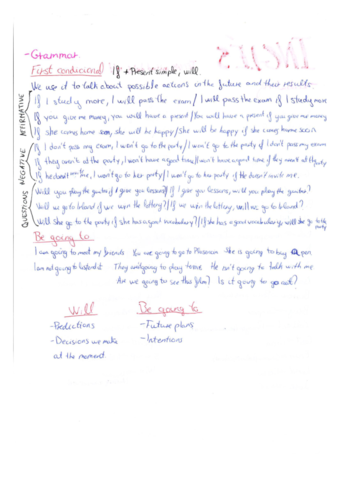 - Grammar
First conditional If + Present simple, will
We use it to talk about possible actions in the future and their results.
AFFIRMATIVE
If I study more, I will pass the exam / I will pass the exam if I study more
If you give me money, you will have a present / You will have a present if you give me money
If she comes home soon, she will be happy / She will be happy if she comes home soon
NEGATIVE
If I don't pass my exam, I won't go to the party / I won't go to the party if I don't pass my exam
If they aren't at the party, I won't have a good time / I won't have a good time if they aren't at the party
If he doesn't me, I won't go to her party / I won't go to her party if he doesn't me
QUESTIONS
Will you play the guitar if I give you lessons? / If I give you lessons, will you play the guitar?
Will we go to if we win the lottery? / If we win the lottery, will we go to ?
Will she go to the party if she has a good vocabulary? / If she has a good vocabulary, will she go to the party
Be going to
I am going to meet my friends You are going to go to She is going to buy a pen
I am not going to They going to play He isn't going to talk with me
Are we going to see this film? Is it going to go out?
Will Be going to
- Predictions - Future plans
- Decisions we make - Intentions
at the moment